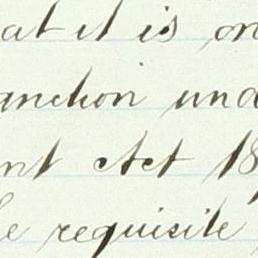 at it is on
anction und
nt Act 18
e requisite